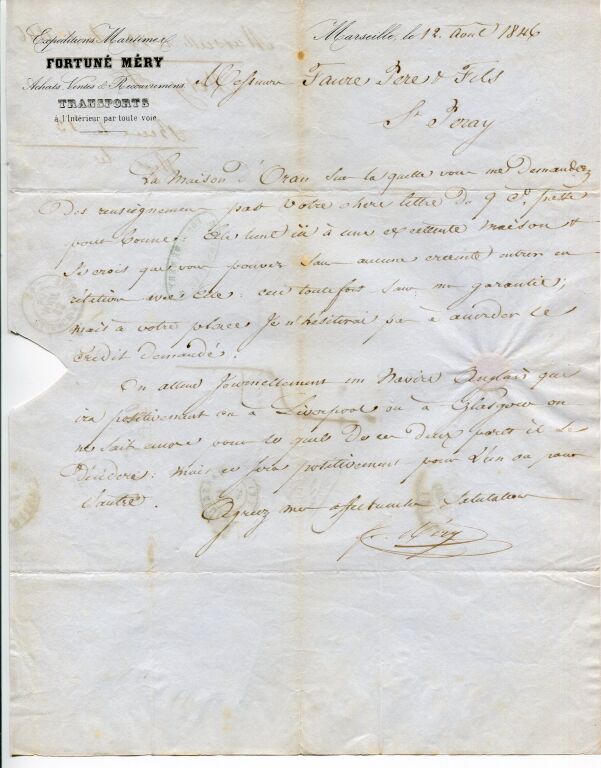 Expéditions Maritimes,
FORTUNÉ MÉRY
Achats, Ventes & Recouvremens
TRANSPORTS
à l'Intérieur par toute voie
Marseille, le 12 Août 1846
Messieurs Faure Père & Fils
St Péray
La Maison d'Oran sur laquelle vous me demandez
des renseignement par votre chère lettre du 9 Ct. passe
pour bonne: Elle tient ici à une excellente maison &
Je crois que vous pouvez sans aucune crainte entrer en
rélation avec Elle: ceci toutefois sans ma garantie;
mais à votre place Je n'hésiterai pas à accorder le
Crédit demandé.
On attend Journellement un Navire Anglais que
ira positivement ou à Liverpool ou à Glasgow on
ne sait encore pour lequels de ces deux ports il se
Décidera: mais ce sera positivement pour l'un ou pour
l'autre.
Agréez mes affectueuses Salutations
F. Méry